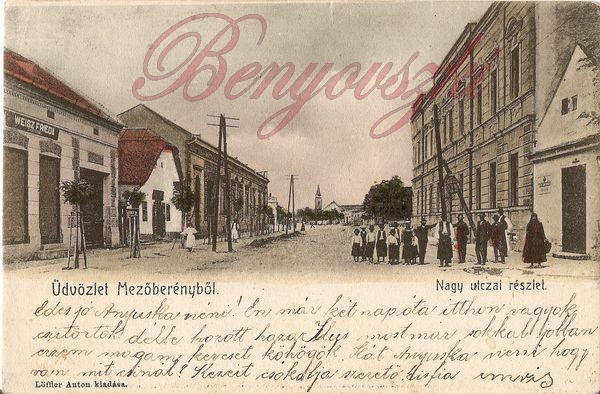 Benyovszky
WEISZ FRIEDA
Üdvözlet Mezőberényből.
Nagy utczai részlet.
Édes jó Anyuska néni! Én már két nap óta itthon vagyok
csütörtök délbe hozott haza most már sokkal jobban
érzem magam, keveset köhögök. Hát Anyuska néni hogy
van mit csinál? Kezeit csókolja szerető
Löffler Anton kiadása.